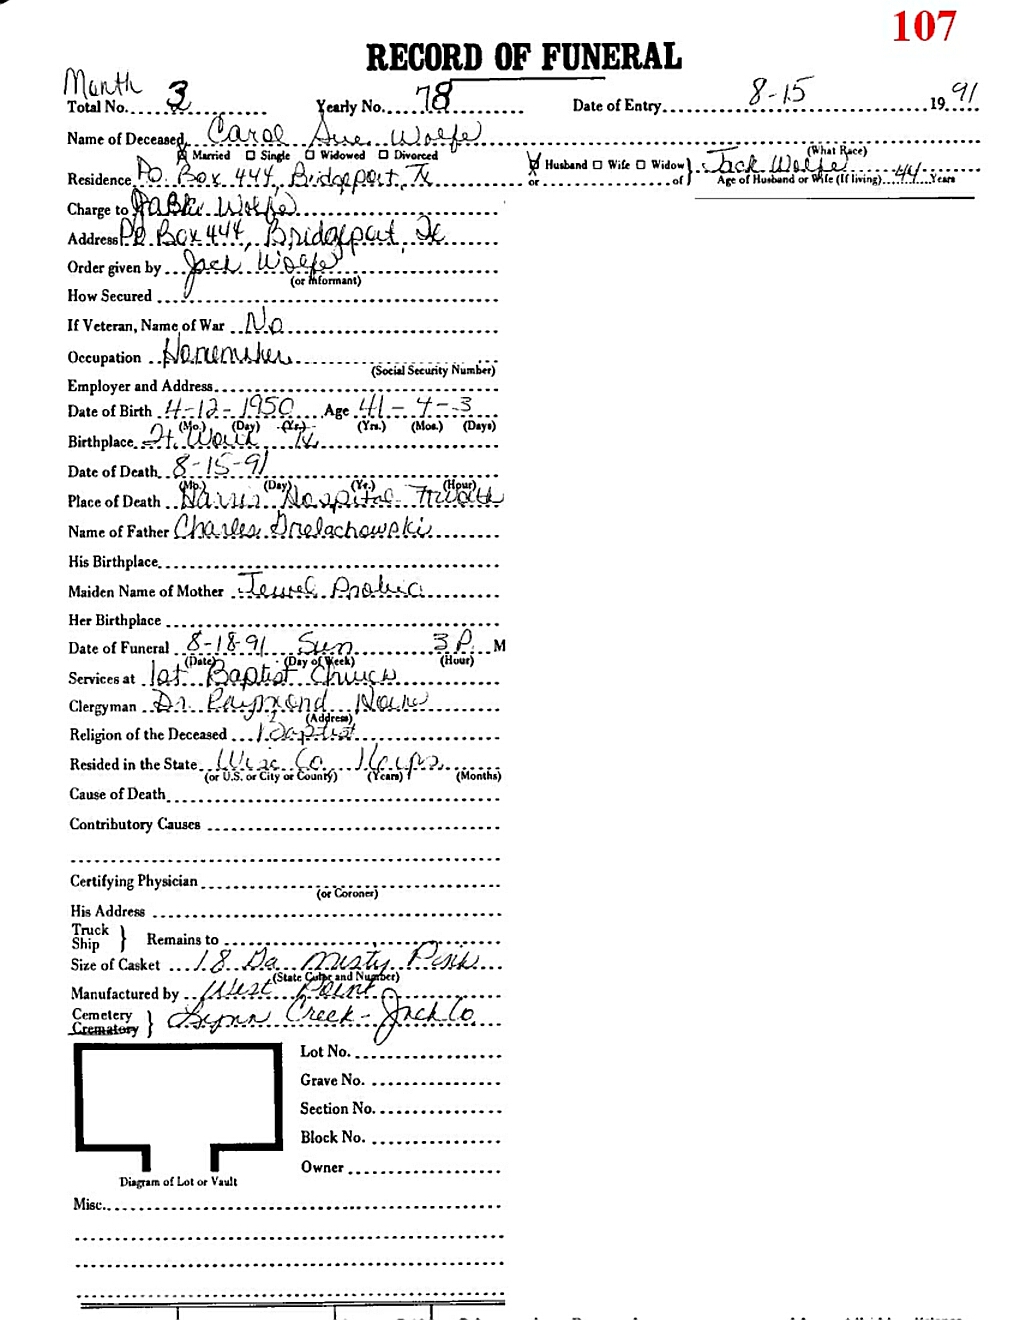 107
RECORD OF FUNERAL
Month
Total No. 3 Yearly No. 78 Date of Entry 8-15 1991
Name of Deceased Carol Sue Wolfe (What Race)
Married Single Widowed Divorced Husband Wife Widow } Jack Wolfe
Residence P.O. Box 444, Bridgeport, Tx or of Age of Husband or Wife (If living) 44 Years
Charge to Jack Wolfe
Address PO Box 444, Bridgeport, Tx
Order given by Jack Wolfe
(or Informant)
How Secured
If Veteran, Name of War No
Occupation Homemaker
(Social Security Number)
Employer and Address
Date of Birth 4-12-1950 Age 41-4-3
(Mo.) (Day) (Yr.) (Yrs.) (Mos.) (Days)
Birthplace Ft. Worth Tx
Date of Death 8-15-91
(Mo.) (Day) (Yr.) (Hour)
Place of Death Harris Hospital Ft Worth
Name of Father Charles
His Birthplace
Maiden Name of Mother Jewel
Her Birthplace
Date of Funeral 8-18-91 Sun 3 P. M
(Date) (Day of Week) (Hour)
Services at 1st Baptist Church
Clergyman Dr. Raymond
(Address)
Religion of the Deceased Baptist
Resided in the State Wise Co 16 yrs
(or U.S. or City or County) (Years) (Months)
Cause of Death
Contributory Causes
Certifying Physician
(or Coroner)
His Address
Truck
Ship } Remains to
Size of Casket 18 Ga Misty Pink
(State Color and Number)
Manufactured by West Point
Cemetery
Crematory } Lynn Creek - Jack Co
Lot No.
Grave No.
Section No.
Block No.
Owner
Diagram of Lot or Vault
Misc.